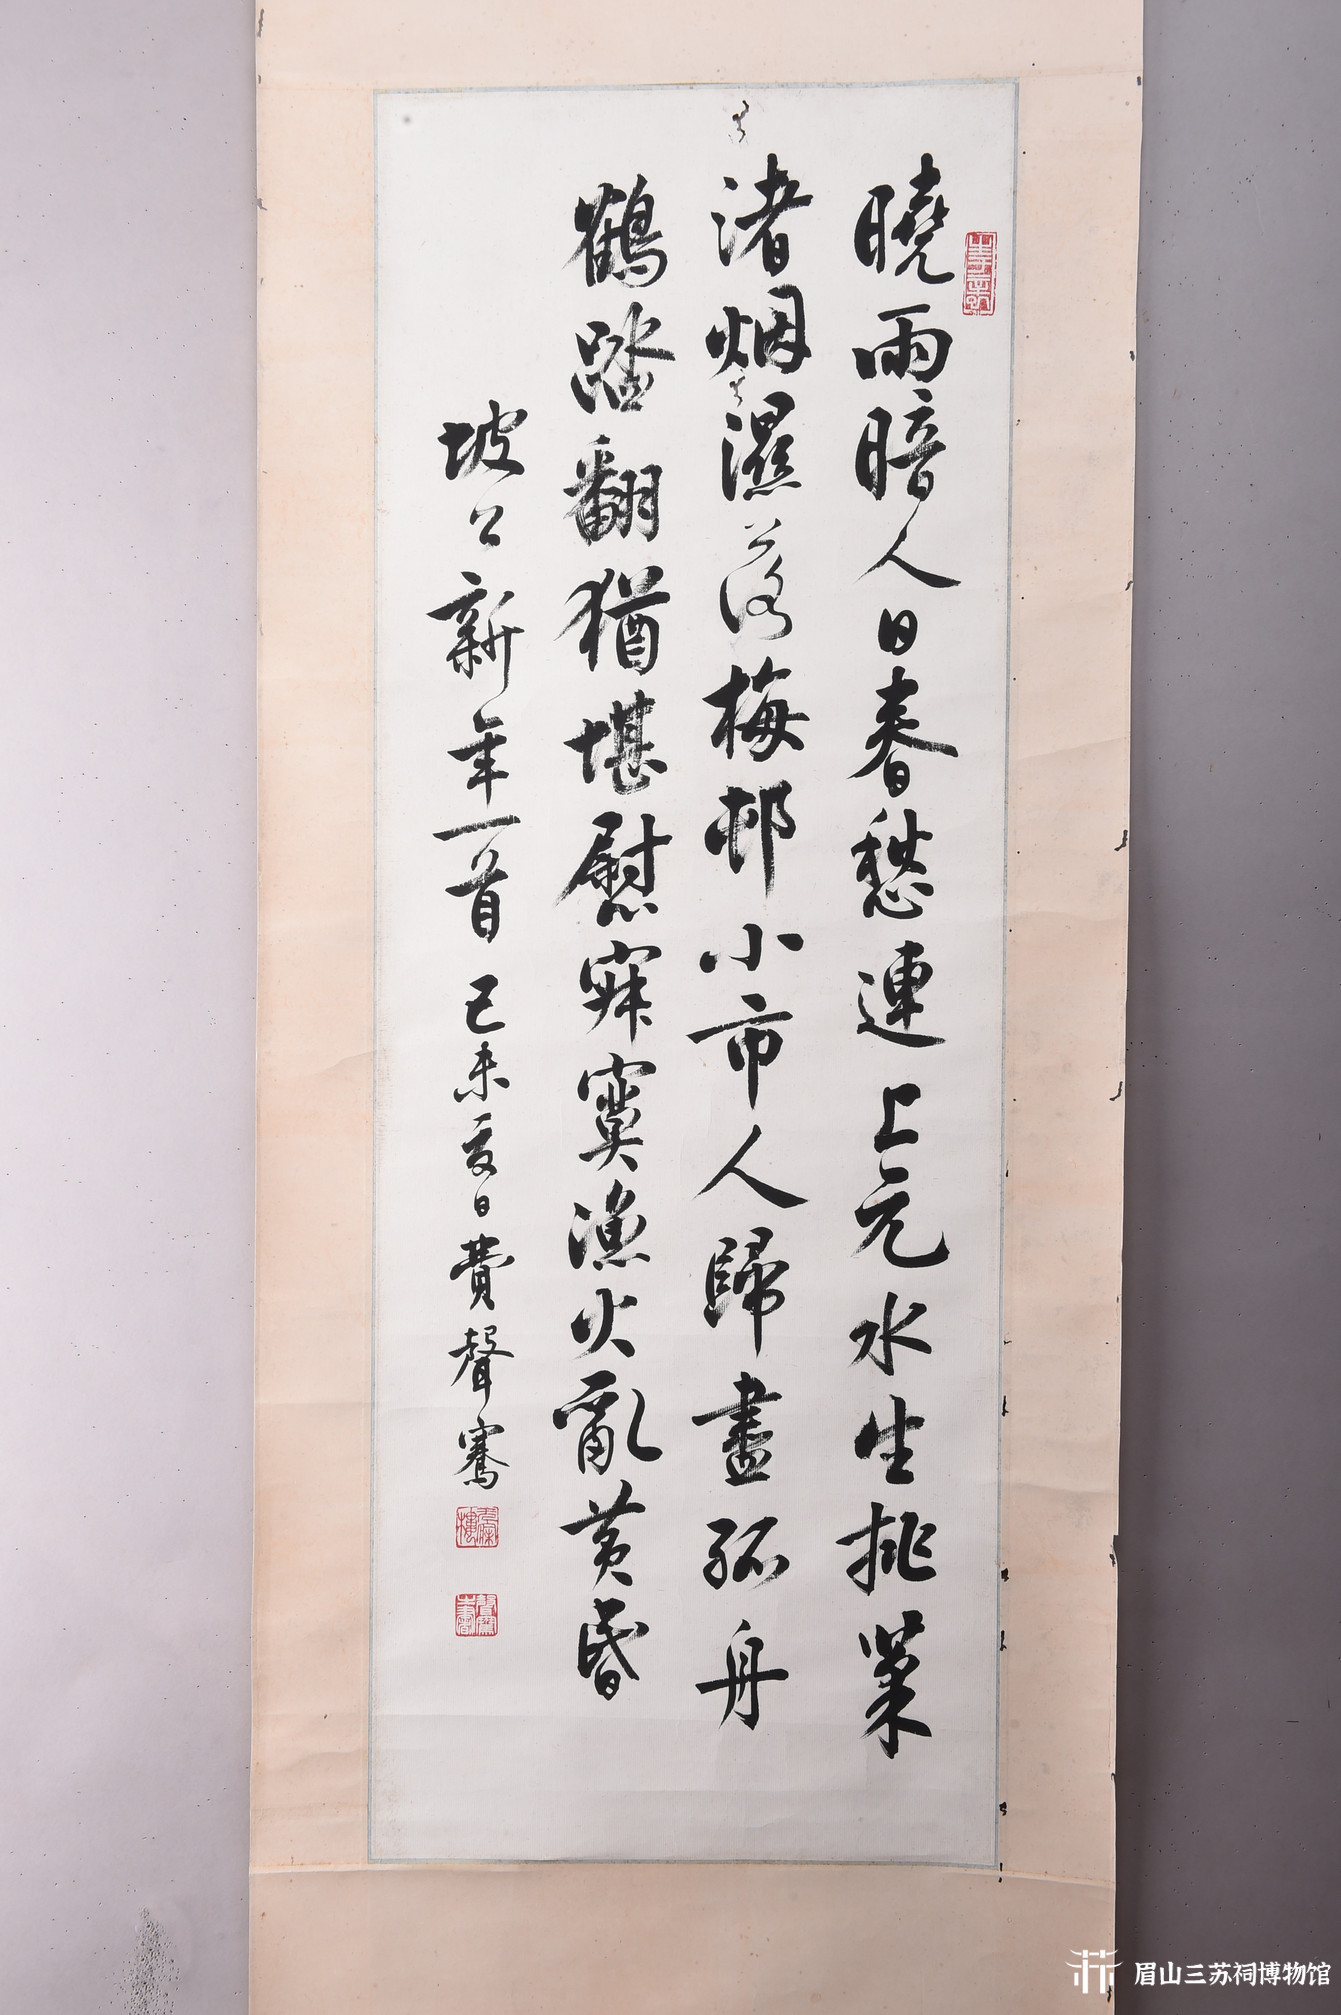 曉雨暗人日春愁連上元水生挑菜
渚烟濕落梅邨小市人歸盡孤舟
鶴踏翻猶堪慰寂寞漁火亂黄昏
坡公新年一首 己未夏日費聲騫
眉山三苏祠博物馆